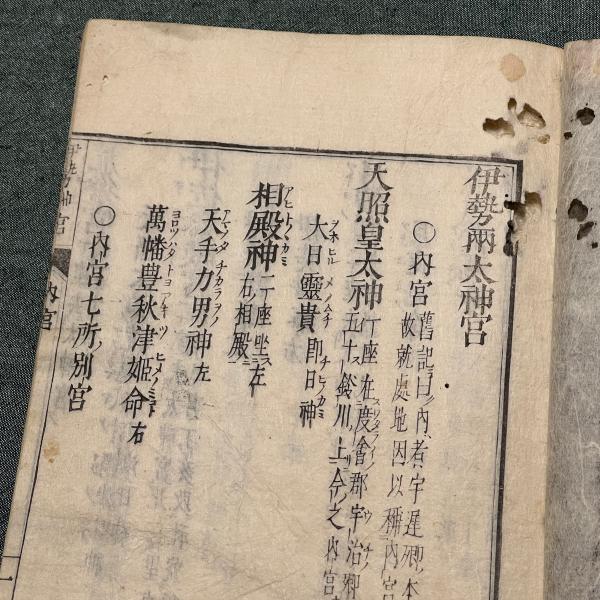 伊勢兩太神宮
〇內宮
舊記曰ノ內、者宇遲郷ノ本
故就處地因以稱內宮
天照皇太神
一座在度會郡宇治郷
五十鈴川ノ上今之內宮
大日孁貴 卽日神
相殿神
一座坐左
右相殿ニ
天手力男神左
萬幡豊秋津姬命右
〇內宮七所ノ別宮
伊勢神宮
內宮